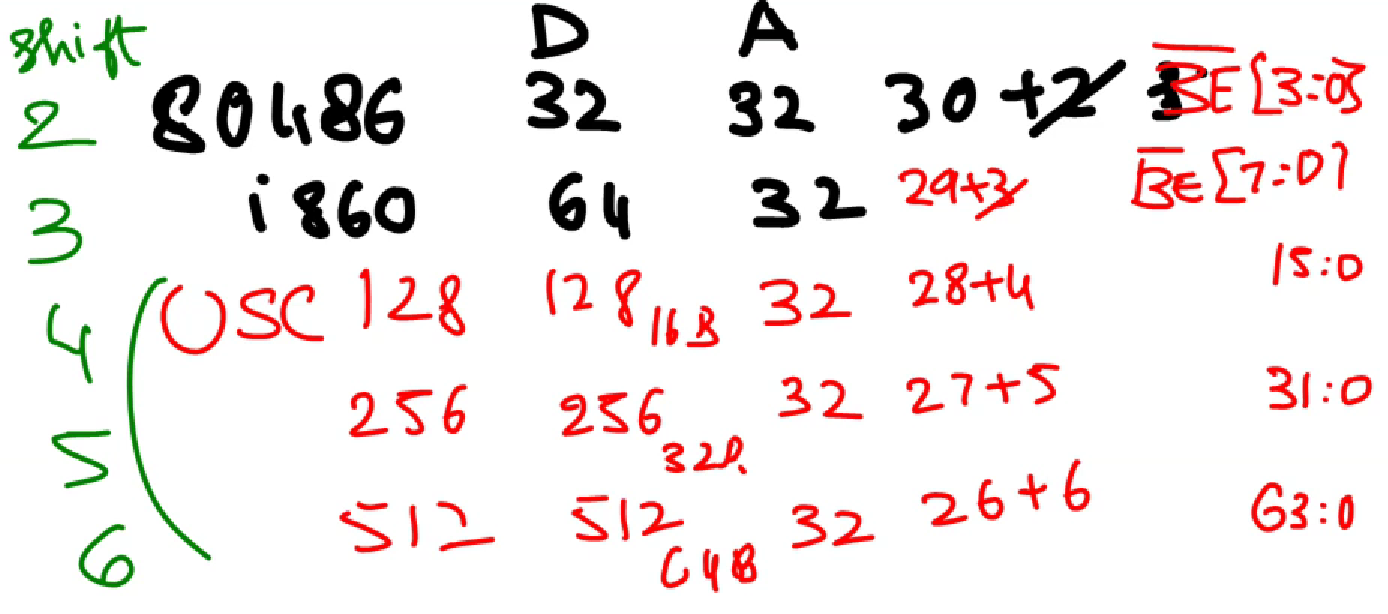 shift D A
2 80486 32 32 30+2 BE[3:0]
3 i860 64 32 29+3 BE[7:0]
4 USC 128 128 16B 32 28+4 15:0
5 256 256 32B 32 27+5 31:0
6 512 512 64B 32 26+6 63:0